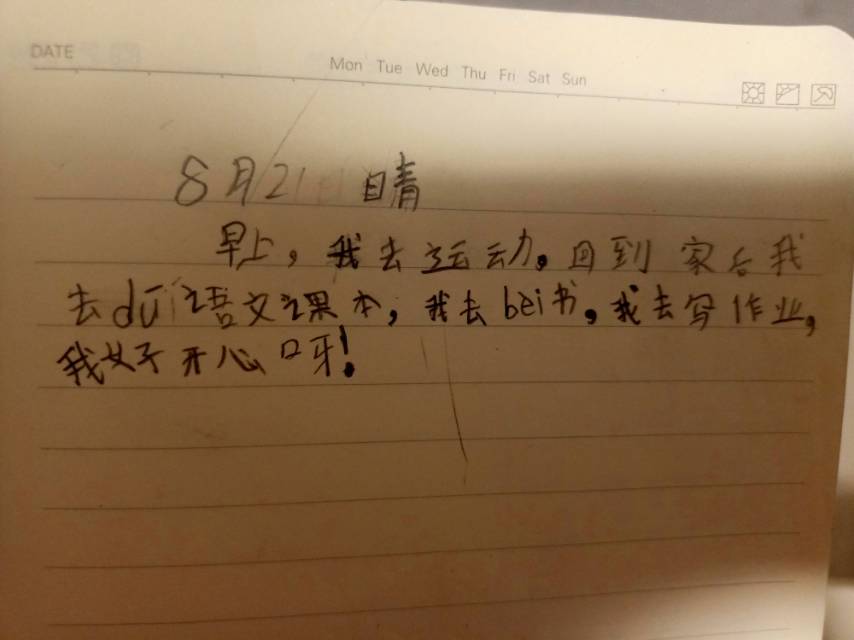 DATE
Mon Tue Wed Thu Fri Sat Sun
8月21日 晴
早上，我去运动。回到家后我
去dú语文课本，我去bei书，我去写作业，
我好开心呀！